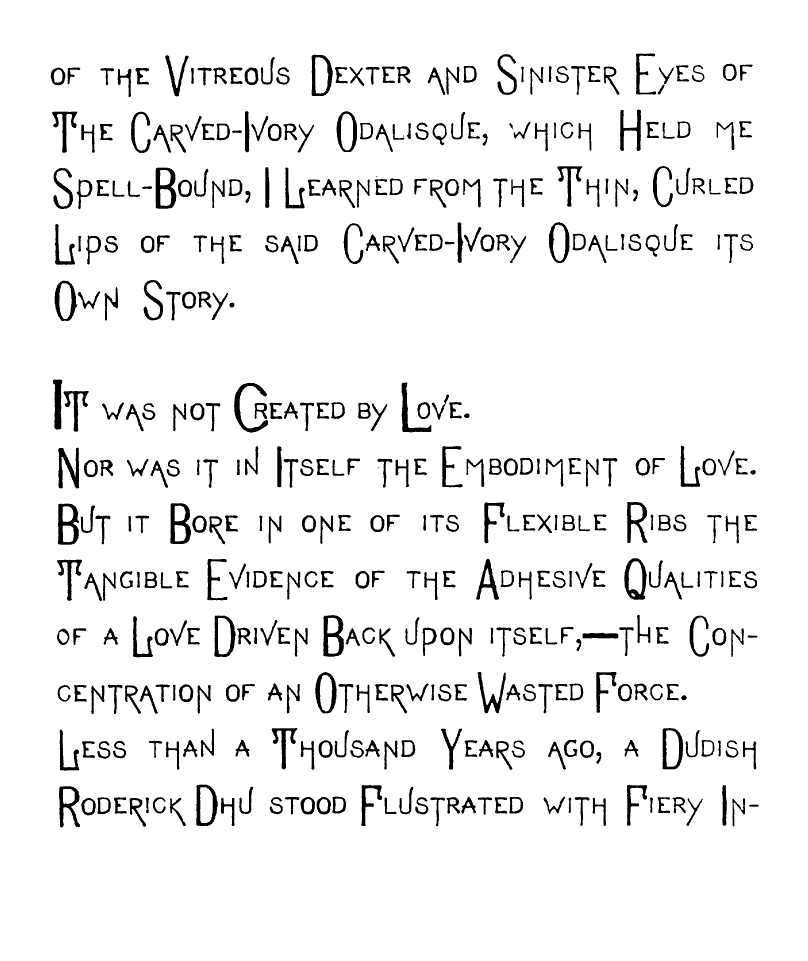 of the Vitreous Dexter and Sinister Eyes of
The Carved-Ivory Odalisque, which Held me
Spell-Bound, I Learned from the Thin, Curled
Lips of the said Carved-Ivory Odalisque its
Own Story.
It was not Created by Love.
Nor was it in Itself the Embodiment of Love.
But it Bore in one of its Flexible Ribs the
Tangible Evidence of the Adhesive Qualities
of a Love Driven Back upon itself,—the Con-
centration of an Otherwise Wasted Force.
Less than a Thousand Years ago, a Dudish
Roderick Dhu stood Flustrated with Fiery In-